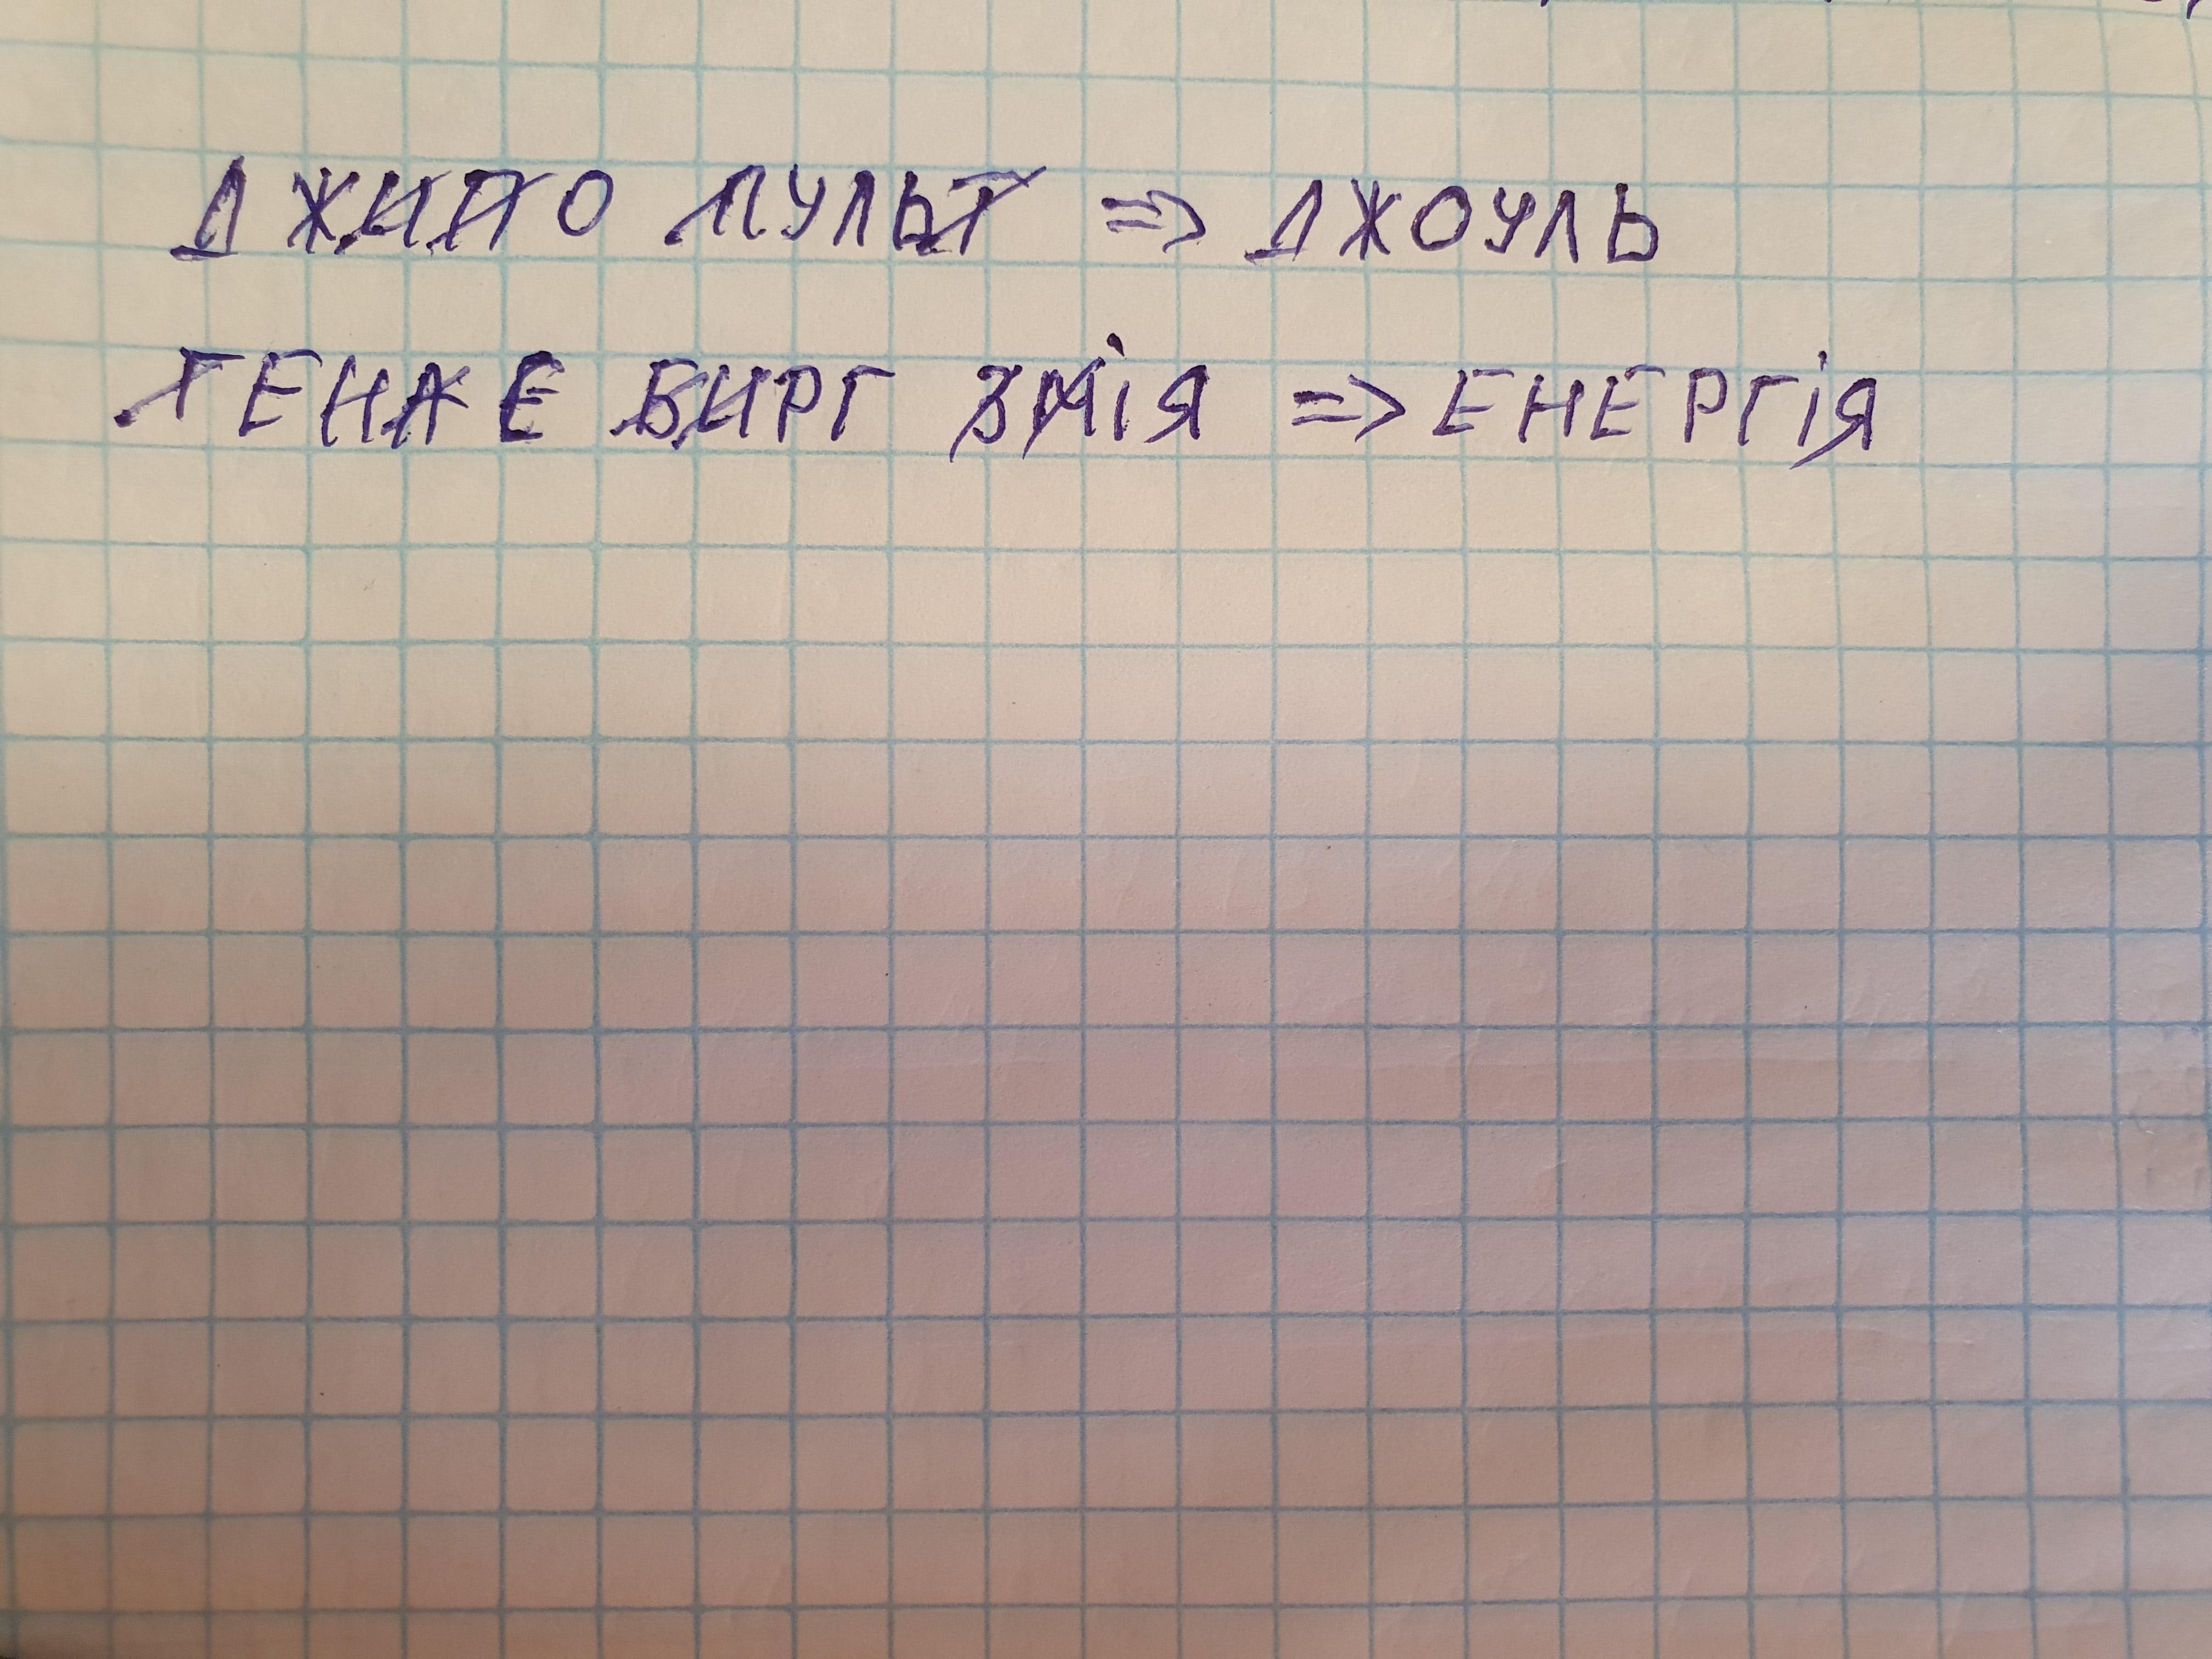 ДЖИПО ПУЛЬТ => ДЖОУЛЬ
ТЕНАЕ БИРГ ЗМІЯ => ЕНЕРГІЯ